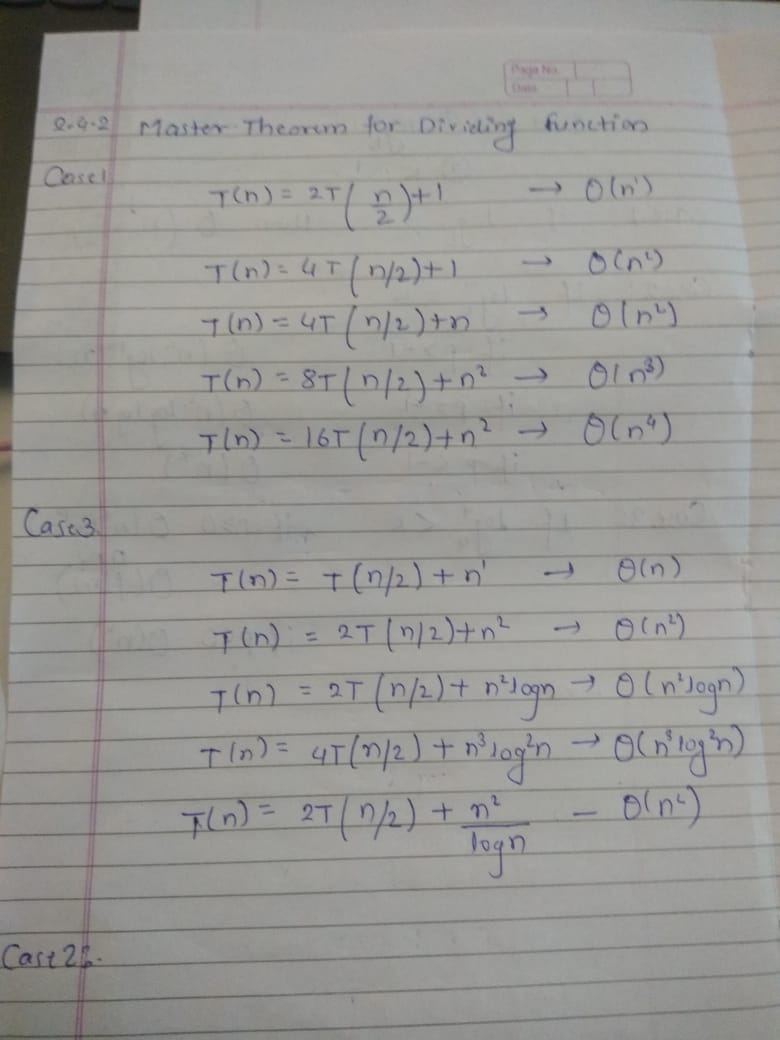 Page No.
Date
2.4.2 Master Theorem for Dividing function
Case1
T(n) = 2T(n/2)+1 → θ(n¹)
T(n) = 4T(n/2)+1 → θ(n²)
T(n) = 4T(n/2)+n → θ(n²)
T(n) = 8T(n/2)+n² → θ(n³)
T(n) = 16T(n/2)+n² → θ(n⁴)
Case3
T(n) = T(n/2) + n¹ → θ(n)
T(n) = 2T(n/2)+n² → θ(n²)
T(n) = 2T(n/2) + n²logn → θ(n²logn)
T(n) = 4T(n/2) + n³log²n → θ(n³log²n)
T(n) = 2T(n/2) + n²/logn - θ(n²)
Case 2